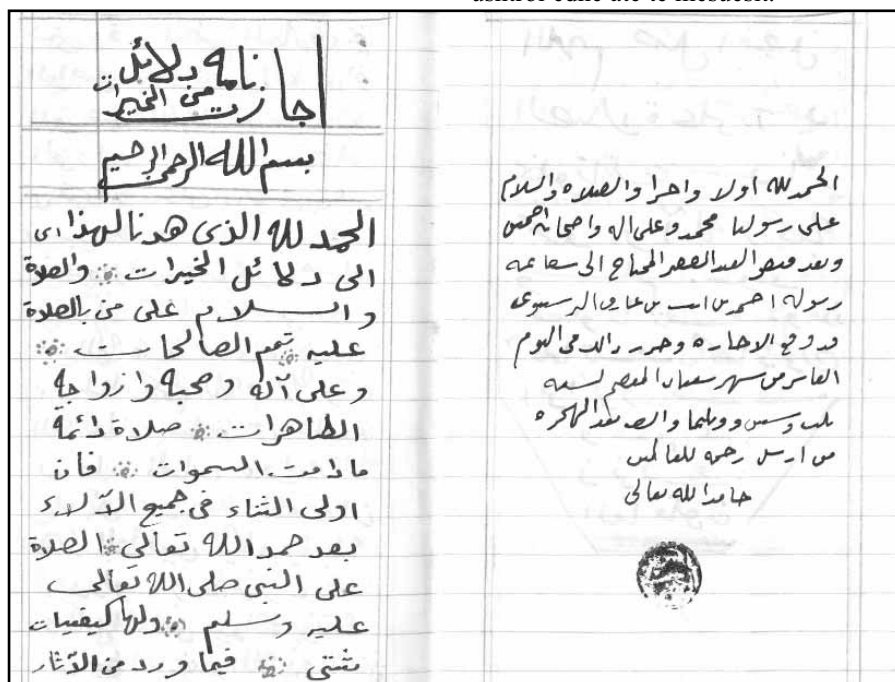 اجازت نامه دلائل من الخيرات
بسم الله الرحمن الرحيم
الحمد لله الذى هدنا لهذا اى
الى دلائل الخيرات والصلاة
والسلام على من بالصلاة
عليه تتم الصالحات
وعلى آله وصحبه وازواجه
الطاهرات صلاة دائمة
مادامت السموات فان
اولى الثناء فى جميع الآلاء
بعد حمد الله تعالى الصلاة
على النبى صلى الله تعالى
عليه وسلم ولها كيفيات
شتى فيما ورد من الآثار
الحمد لله اولا واخرا والصلاه والسلام
على رسولنا محمد وعلى اله واصحابه اجمعين
وبعد فيقول العبد الفقير المحتاج الى شفاعه
رسوله احمد بن
قد وقع الاجازه وحرر ذالك فى اليوم
العاشر من شهر شعبان المعظم لسنه
ثلث وستين والف بعد الهجره
من ارسل رحمه للعالمين
حامدا لله تعالى